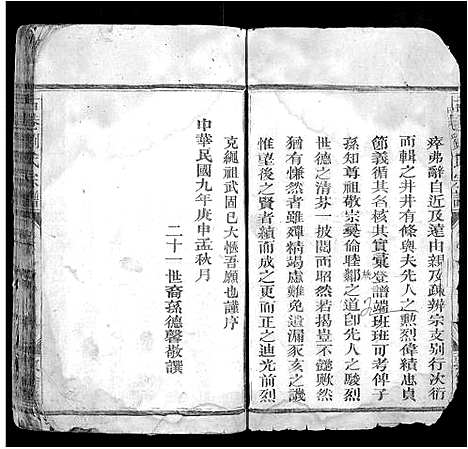 瘁弗辭自近及遠由親及疎辨宗支別行次衍
而輯之井井有條與夫先人之勲烈偉績忠貞
節義循其名核其實彙登譜端班班可考俾子
孫知尊祖敬宗彝倫睦鄰之道卽先人之駿烈
世德之清芬一披閱而昭然若揭豈不懿歟然
猶有慊然者雖殫精竭慮難免遺漏豕亥之譏
惟望後之賢者續而成之更而正之迪光前烈
克繩祖武固巳大愜吾願也謹序
中華民國九年庚申孟秋月
二十一世裔孫德馨敬譔